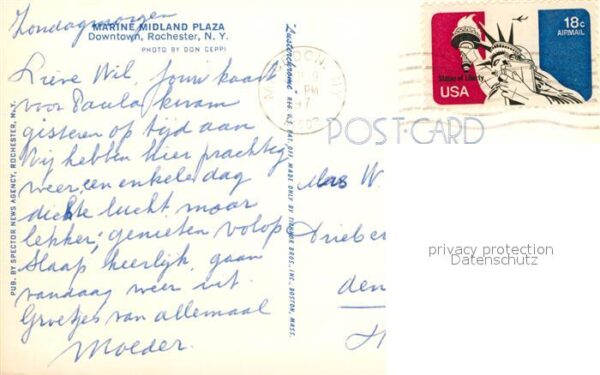 Zondagmorgen
MARINE MIDLAND PLAZA
Downtown, Rochester, N. Y.
PHOTO BY DON CEPPI
Lieve Wil, jouw kaart
voor Paula kwam
gisteren op tijd aan
Wij hebben hier prachtig
weer, een enkele dag
dichte lucht maar
lekker; genieten volop
Slaap heerlijk, gaan
vandaag weer uit.
Groetjes van allemaal
Moeder.
PUB. BY SPECTOR NEWS AGENCY, ROCHESTER, N.Y.
Lusterchrome REG. U.S. PAT. OFF. MADE ONLY BY TICHNOR BROS., INC., BOSTON, MASS.
POST CARD
18c
AIRMAIL
Statue of Liberty
USA
PM
Mrs W.
Drieber
den
H
privacy protection
Datenschutz